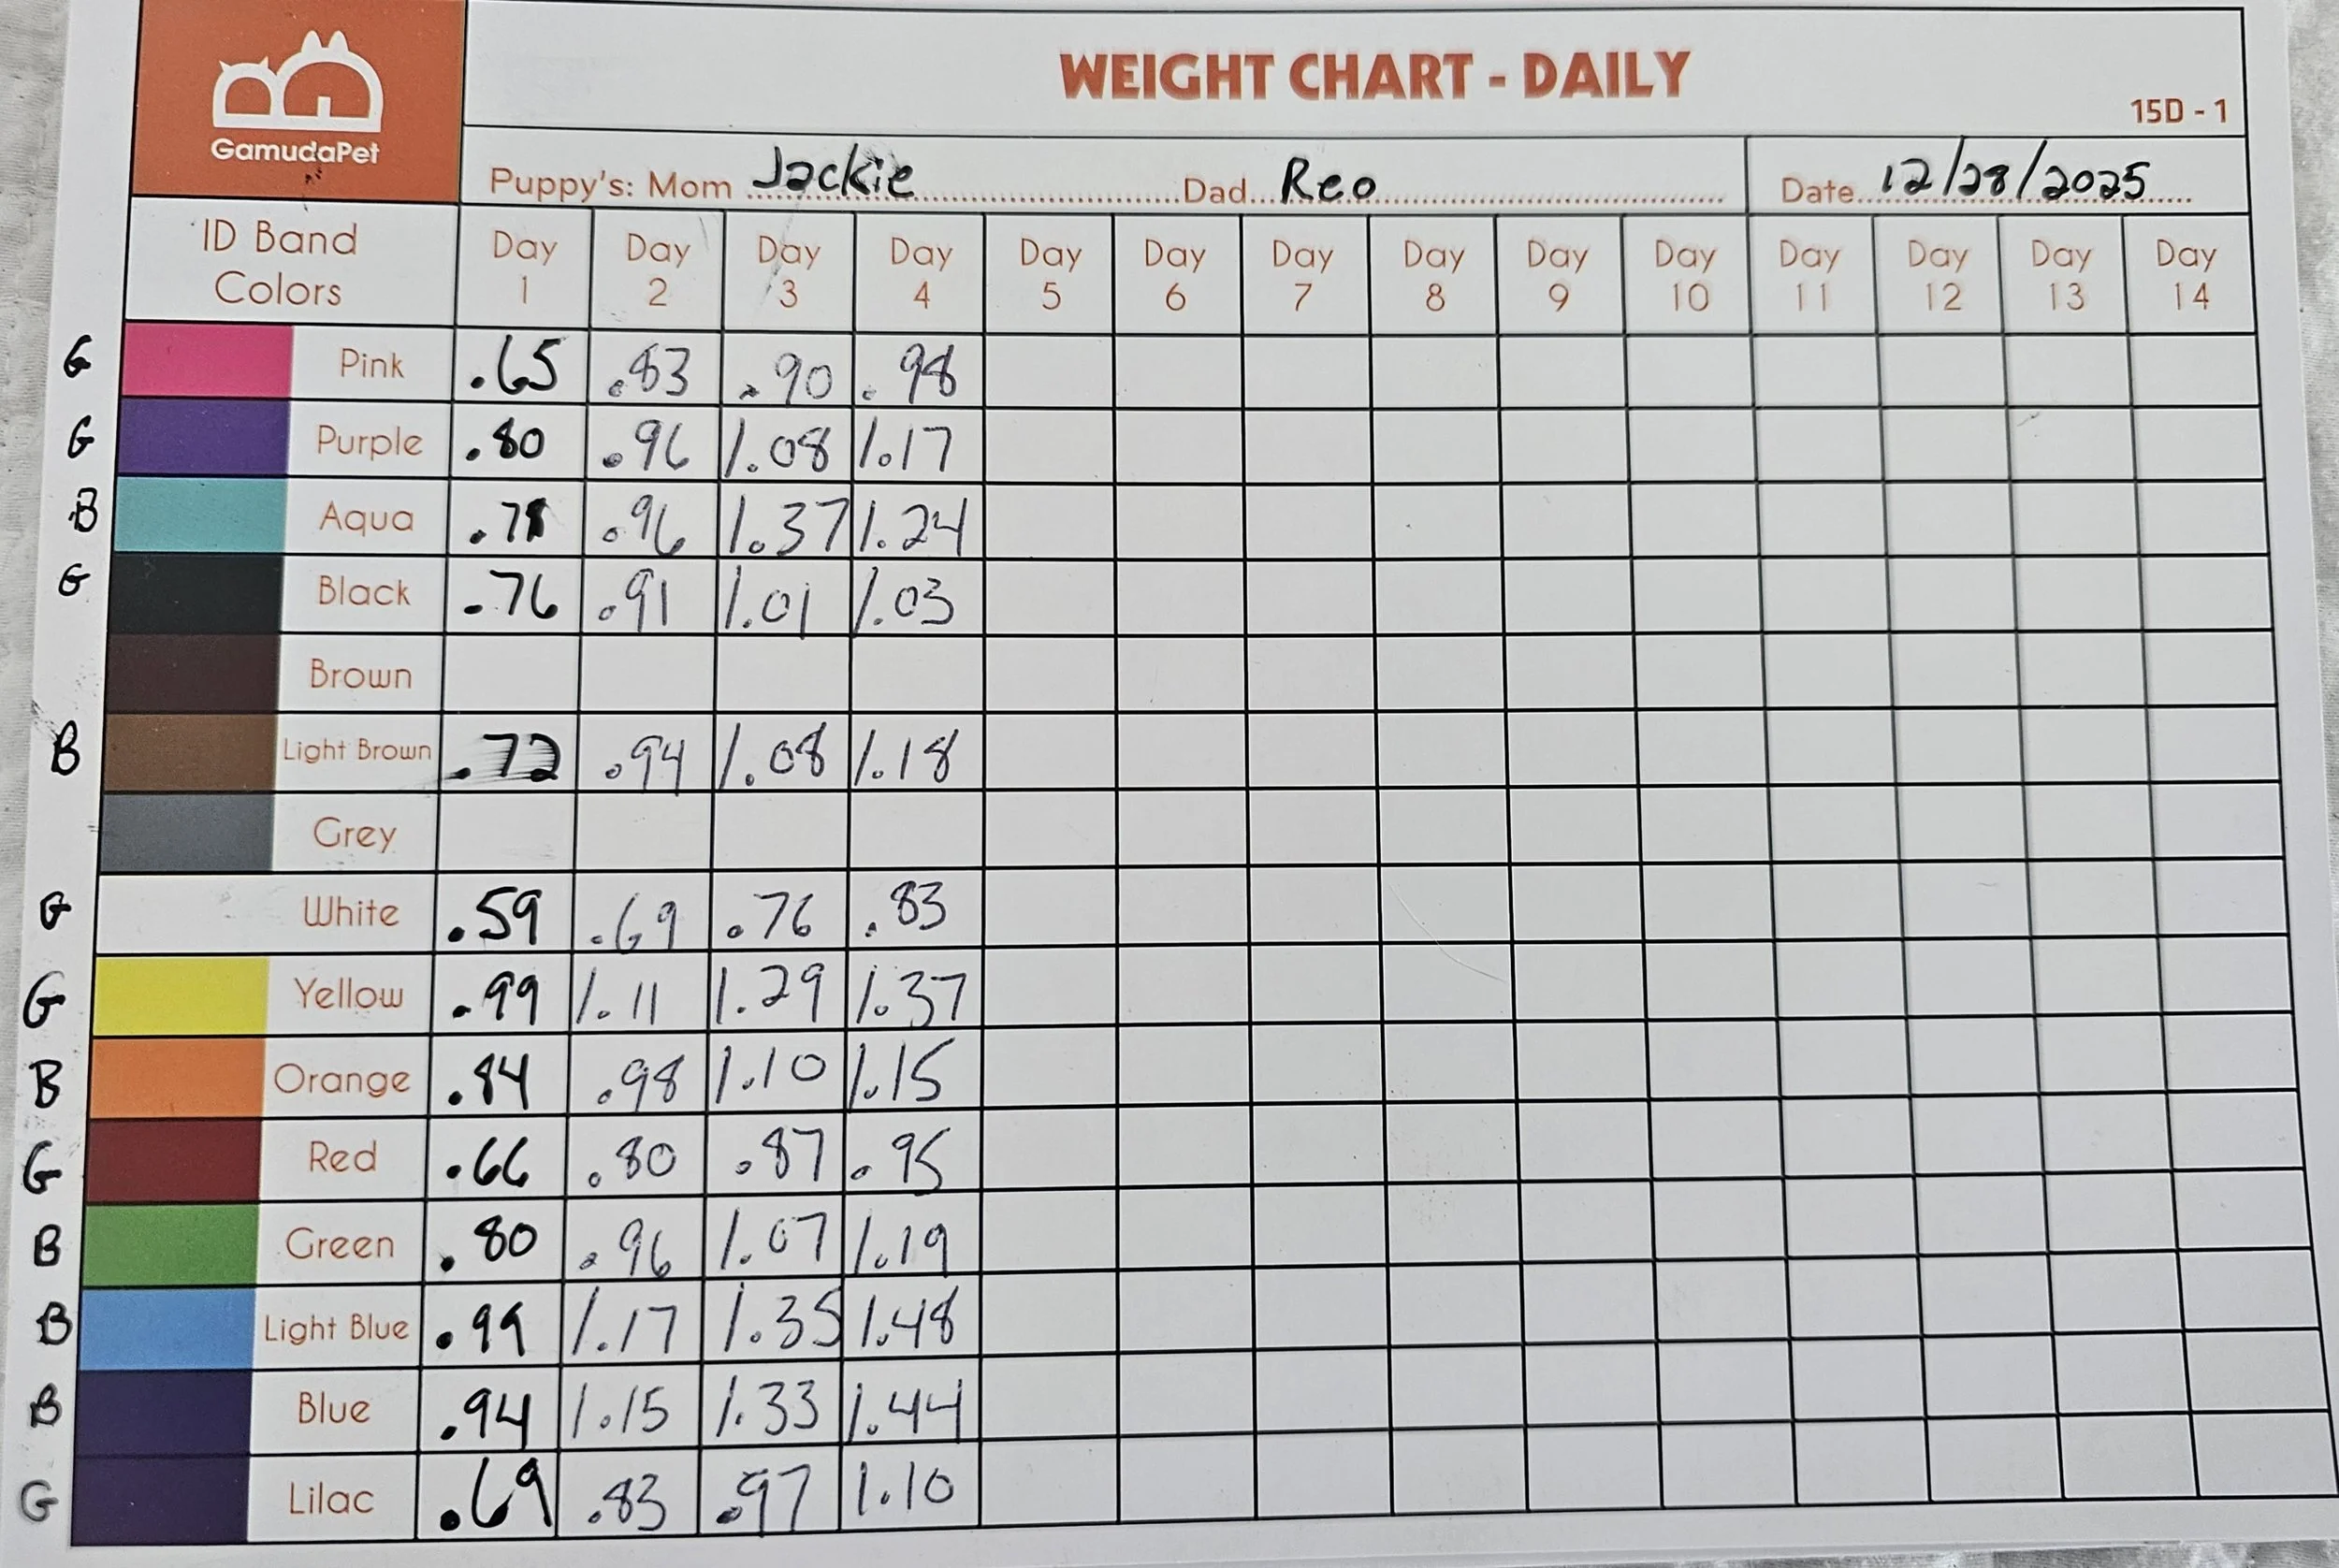 WEIGHT CHART - DAILY
15D - 1
GamudaPet
Puppy's: Mom Jackie Dad Reo Date 12/28/2025
ID Band Colors Day 1 Day 2 Day 3 Day 4 Day 5 Day 6 Day 7 Day 8 Day 9 Day 10 Day 11 Day 12 Day 13 Day 14
G Pink .65 .83 .90 .98
G Purple .80 .96 1.08 1.17
B Aqua .96 1.37 1.24
G Black .76 .91 1.01 1.03
Brown
B Light Brown .72 .94 1.08 1.18
Grey
G White .59 .69 .76 .83
G Yellow .99 1.11 1.29 1.37
B Orange .84 .98 1.10 1.15
G Red .66 .80 .87 .95
B Green .80 .96 1.07 1.19
B Light Blue .99 1.17 1.35 1.48
B Blue .94 1.15 1.33 1.44
G Lilac .69 .83 .97 1.10